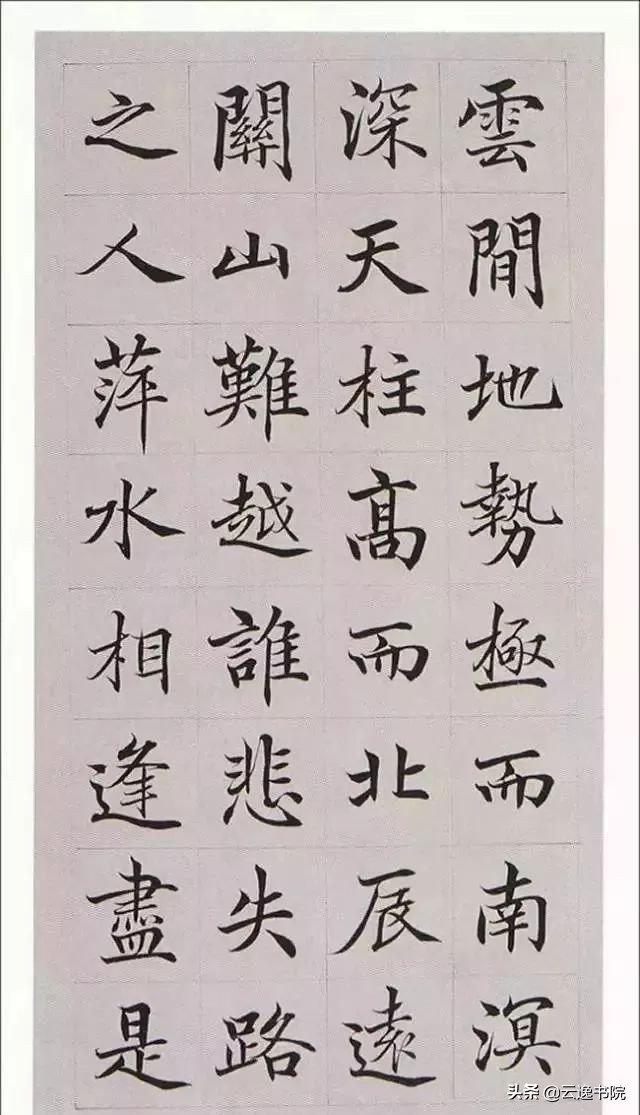 雲間地勢極而南溟
深天柱高而北辰遠
關山難越誰悲失路
之人萍水相逢盡是
头条 @云逸书院